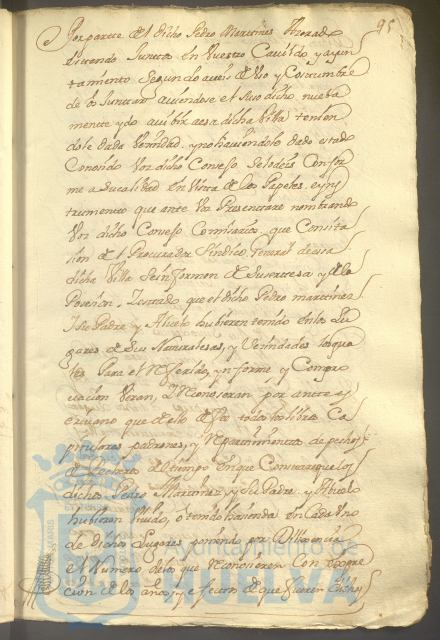 95
Por parte de el dicho Pedro Martines Thorado
siciendo Juntos en Vuestro Cavildo y ayun
tamiento Segun lo aveis de Uso y Costumbre
de os Juntar aviendose el suso dicho nueba
mente ydo a vibir a esa dicha Villa tenien
dole dada Vecindad, y no haviendole dado estado
Conosido Vos dicho Consejo Se lo deis Confor
me a su calidad en Vista de los Papeles e yns
trumentos que ante Vos Presentare nombrando
Vos dicho Consejo Comisarios que Con sita
sion de el Procurador Sindico General de esa
dicha Villa Se informen de Su sertesa y de la
Posesion, y estado que el dicho Pedro martines
Su Padre y Abuelo hubieren tenido en los Lu
gares de Sus Naturalesas, y Vecindades los qua
les Para el Referido, ynforme y Compro
vacion Veran, y Reconoseran por ante es
crivano que de ello de fee todos los libros Ca
pitulares padrones, y Repartimientos de pechos
de Pecheros del tiempo en que Constare que los
dichos Pedro Martines y Su Padre y Abuelo
hubieren Vivido, o tenido hasienda en Cada Uno
de dichos Lugares poniendo por Dilixencia
el Numero de los que Reconosieren Con expre
cion de los años y efectos de que fueren dichos
Ayuntamiento de
HUELVA